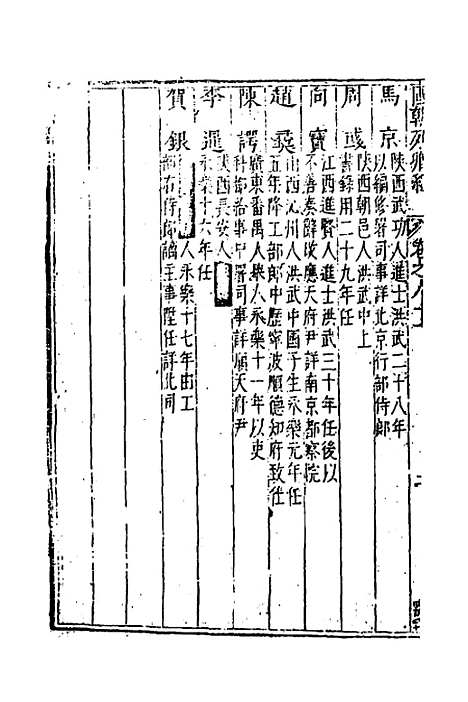 國朝列卿紀 卷之八十
馬京 陝西武功人進士洪武二十八年
以編修署司事詳北京行部侍郎
周彧 陝西朝邑人洪武中上
書錄用二十九年任
向寶 江西進賢人進士洪武三十年任後以
不善奏辭改應天府尹詳南京都察院
趙 山西沁州人洪武中國子生永樂元年任
五年降工部郎中歷寧波順德知府致仕
陳諤 廣東番禺人舉人永樂十一年以吏
科都給事中署司事詳順天府尹
李暹 陝西長安人
永樂十六年任
賀銀 人永樂十七年由工
部右侍郎謫主事陞任詳北司